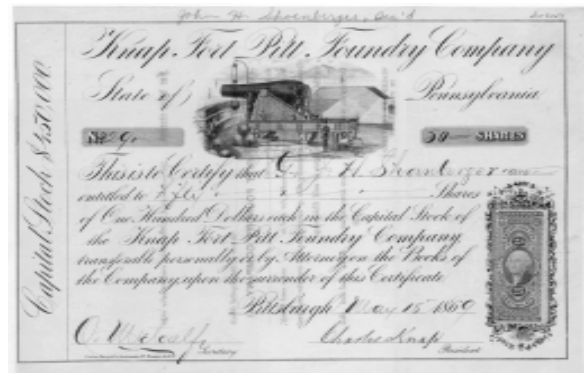 John H. Shoenberger, Dec'd
Knap Fort Pitt Foundry Company
State of Pennsylvania
No. 9. 50 SHARES
This is to Certify that G. & J. H. Shoenberger
entitled to Fifty Shares
of One Hundred Dollars each in the Capital Stock of
the Knap Fort Pitt Foundry Company
transferable personally or by Attorney on the Books of
the Company upon the surrender of this Certificate
Pittsburgh May 15 1869
O. Metcalf Charles Knap
Secretary President
Capital Stock $450,000.